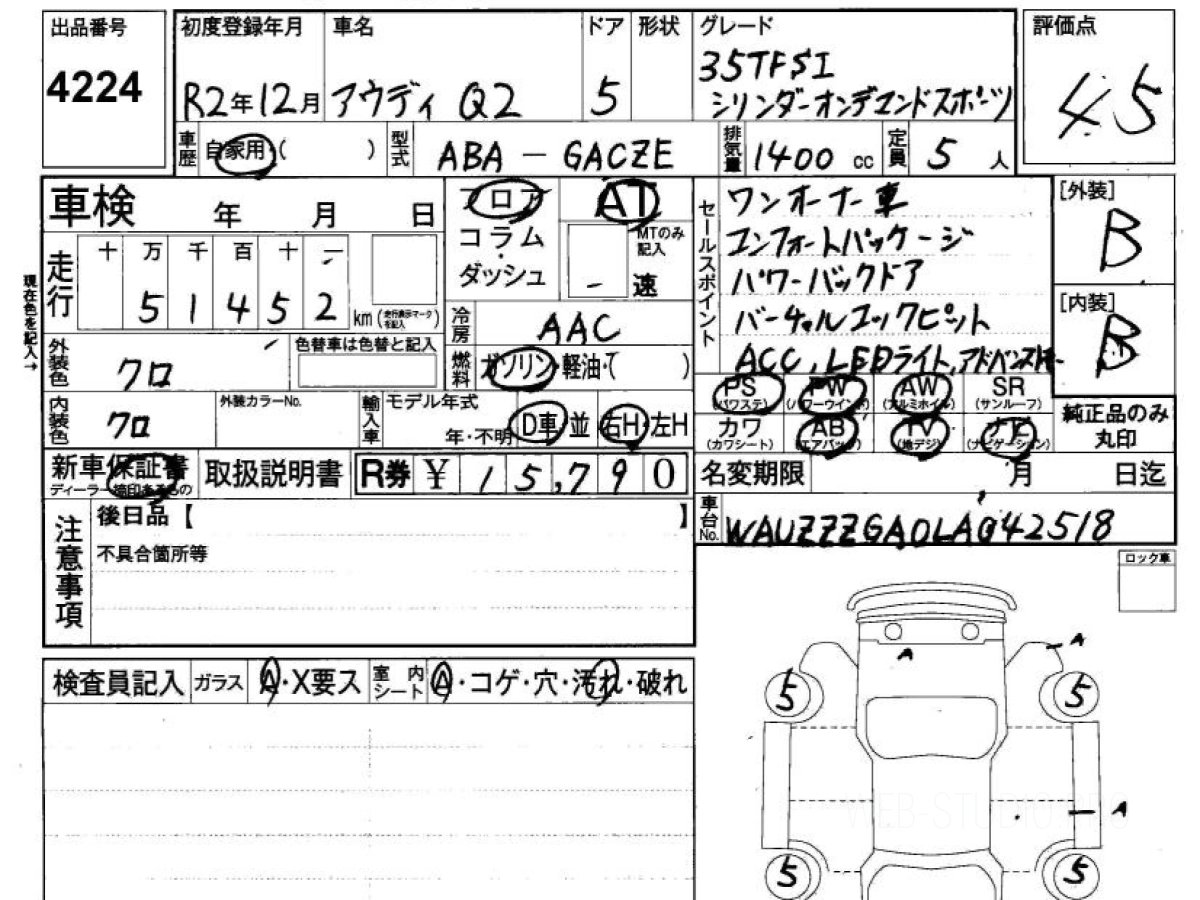 出品番号
4224
初度登録年月 車名 ドア 形状 グレード
R2年12月 アウディ Q2 5 35TFSI
シリンダーオンデマンドスポーツ
評価点
4.5
車歴 自家用・( ) 型式 ABA-GACZE 排気量 1400 cc 定員 5 人
車検 年 月 日
現在色を記入→
走行 十 万 千 百 十 一
5 1 4 5 2 km (走行表示マークを記入)
フロア
コラム
ダッシュ
AT
MTのみ記入
- 速
セールスポイント
ワンオーナー車
コンフォートパッケージ
パワーバックドア
バーチャルコックピット
ACC, LEDライト, アドバンストキー
[外装]
B
[内装]
B
外装色 クロ
色替車は色替と記入
冷房 AAC
燃料 ガソリン・軽油・( )
内装色 クロ
外装カラーNo.
輸入車 モデル年式
年・不明 D車 並 右H・左H
PS (パワステ) PW (パワーウインド) AW (アルミホイル) SR (サンルーフ)
カワ (カワシート) AB (エアバック) TV (地デジ) ナビ (ナビゲーション)
純正品のみ丸印
新車保証書
ディーラー捺印あるもの
取扱説明書
R券 ¥ 1 5,7 9 0
名変期限 月 日迄
車台No. WAUZZZGA0LA042518
注意事項
後日品【 】
不具合箇所等
ロック車
検査員記入 ガラス A・X要ス 室内シート A・コゲ・穴・汚れ・破れ
A
A
5
5
A
5
5
WEB-STUDIO.PRO